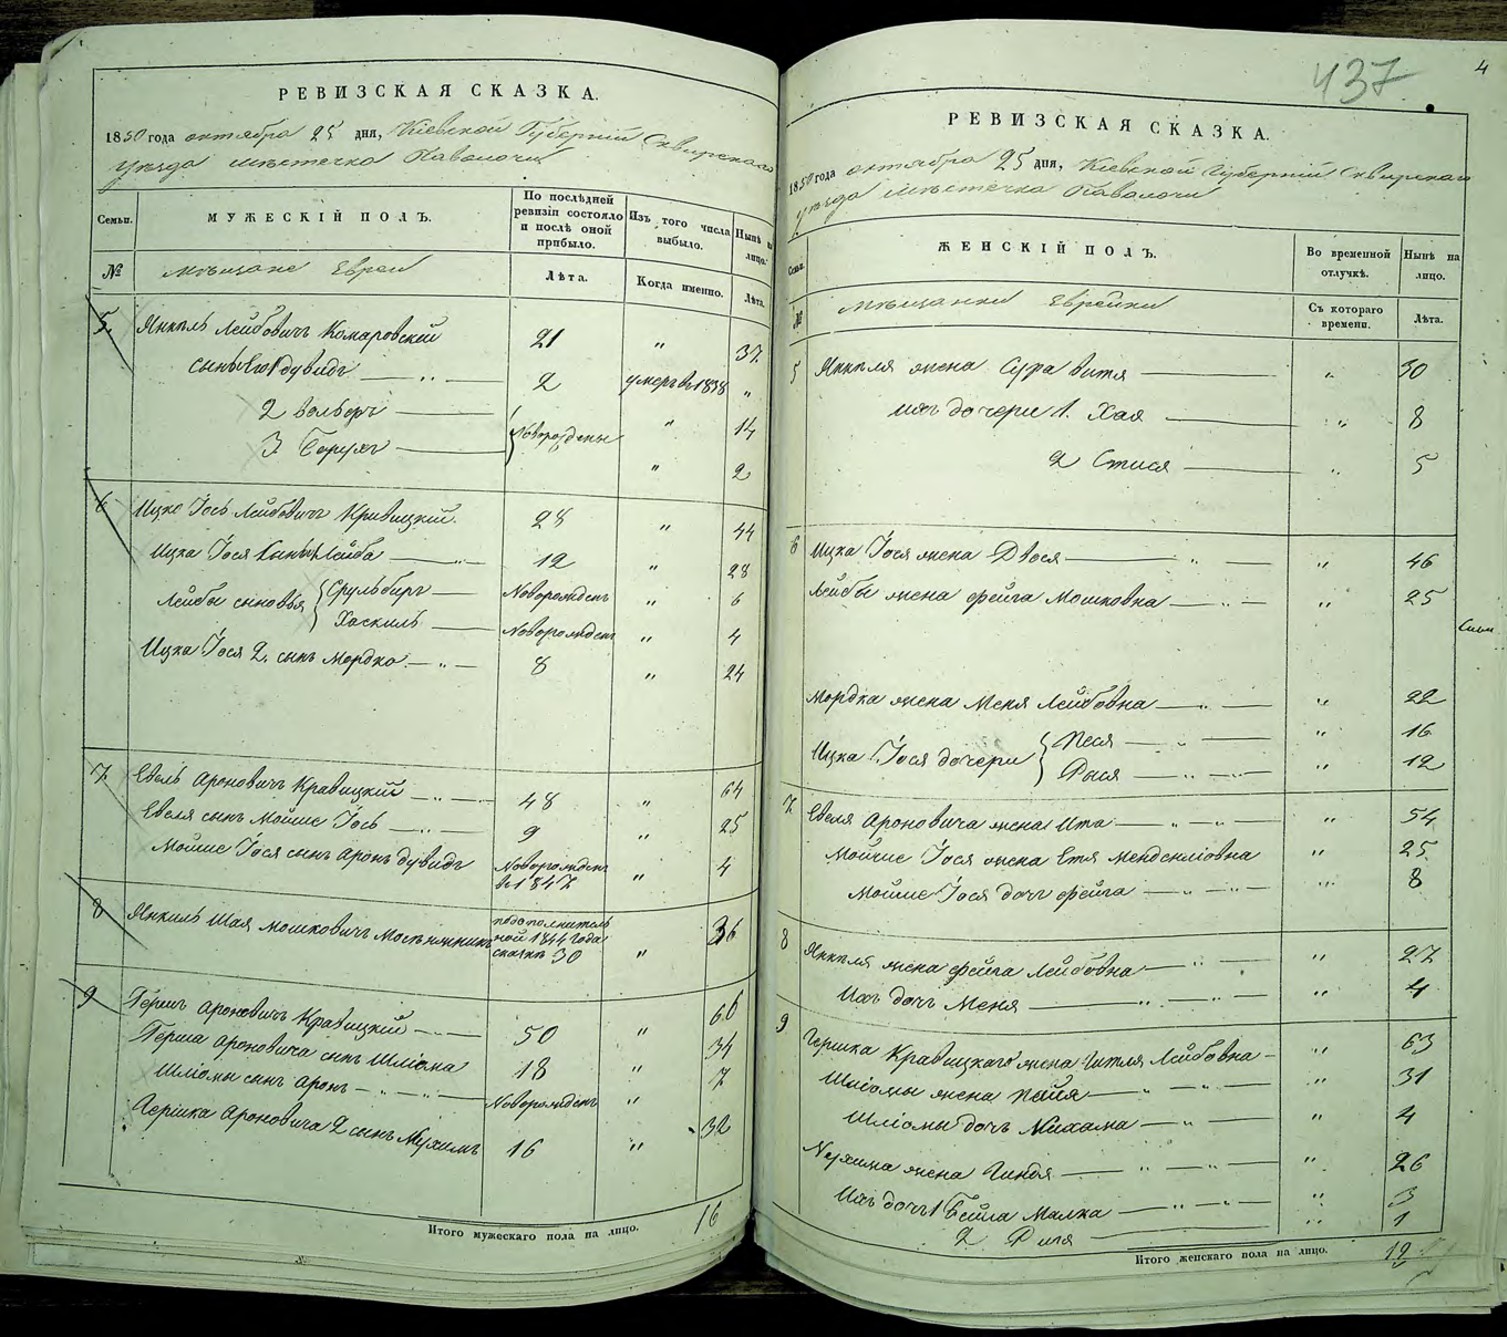 РЕВИЗСКАЯ СКАЗКА.
1850 года октября 25 дня, Кіевской Губерніи Сквирскаго
уѣзда мѣстечка Паволочи
Семьи.
МУЖЕСКІЙ ПОЛЪ.
По послѣдней ревизіи состояло и послѣ оной прибыло.
Изъ того числа выбыло.
Нынѣ на лицо.
№
Мѣщане Евреи
Лѣта.
Когда именно.
Лѣта.
5. Янкель Лейбовичъ Комаровскій 21 " 37
сынъ его 1 Дувидъ — " — 2 умеръ в 1838 "
2 Вольберъ — Новорождены " 14
3. Борухъ — " 2
6 Ицко Іось Лейбовичъ Кравицкій. 28 " 44
Ицка Іося сынъ 1 Лейба — " — 12 " 28
Лейбы сыновья Сруль Биръ — Новорожденъ " 6
Хаскиль — Новорожденъ " 4
Ицка Іося 2. сынъ Мордко — " — 8 " 24
7. Евель Ароновичъ Кравицкій — " — 48 " 64
Евеля сынъ Мойше Іось — " — 9 " 25
Мойше Іося сынъ Аронъ Дувидъ Новорожденъ в 1847 " 4
8 Янкиль Шая Мошковичъ
по дополнительной 1844 года сказкѣ 30 " 36
9 Гершъ Ароновичъ Кравицкій — " — 50 " 66
Герша Ароновича сынъ Шліома 18 " 34
Шліомы сынъ Аронъ — " — " — Новорожденъ " 7
Гершка Ароновича 2 сынъ Нухимъ 16 " 32
Итого мужескаго пола на лицо. 16
437
4
РЕВИЗСКАЯ СКАЗКА.
1850 года октября 25 дня, Кіевской Губерніи Сквирскаго
уѣзда мѣстечка Паволочи
Семьи.
ЖЕНСКІЙ ПОЛЪ.
Во временной отлучкѣ.
Нынѣ на лицо.
№
Мѣщанки Еврейки
Съ котораго времени.
Лѣта.
5 Янкеля жена Сура Витя — " 30
ихъ дочери 1. Хая — " 8
2 Стися — " 5
6 Ицка Іося жена Двося — " — " 46
Лейбы жена Фейга Мошковна — " — " 25
Мордка жена Меня Лейбовна — " — " 22
Ицка Іося дочери Песя — " — " 16
Рыся — " — " — " 12
7 Евеля Ароновича жена Ита — " — " — " 54
Мойше Іося жена Етя " 25
Мойше Іося дочь Фейга — " — " — " 8
8 Янкеля жена Фейга Лейбовна — " — " 27
Ихъ дочь Меня — " — " — " 4
9 Гершка Кравицкаго жена Гитля Лейбовна — " 63
Шліомы жена — " — " — " 31
Шліомы дочь Нихама — " — " 4
Нухима жена Гиндя — " — " — " 26
Ихъ дочь 1 Бейла Малка — " — " — " 3
2 — " 1
Итого женскаго пола на лицо. 19